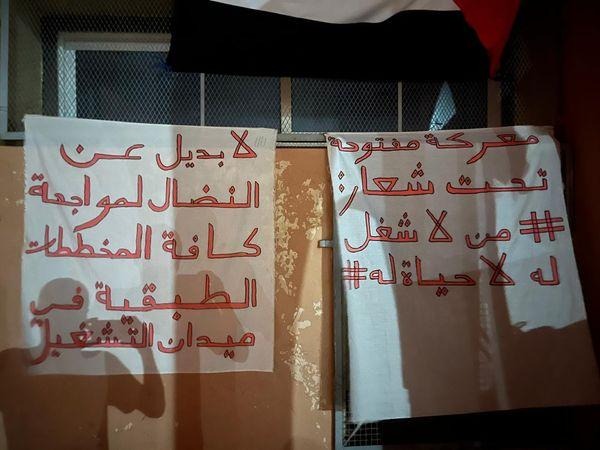 معركة مفتوحة
تحت شعار:
# من لا شغل
له لا حياة له#
لا بديل عن
النضال لمواجهة
كافة المخططات
الطبقية في
ميدان التشغيل